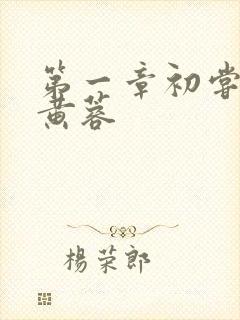 第一章初尝
黄蓉
楊荣郎